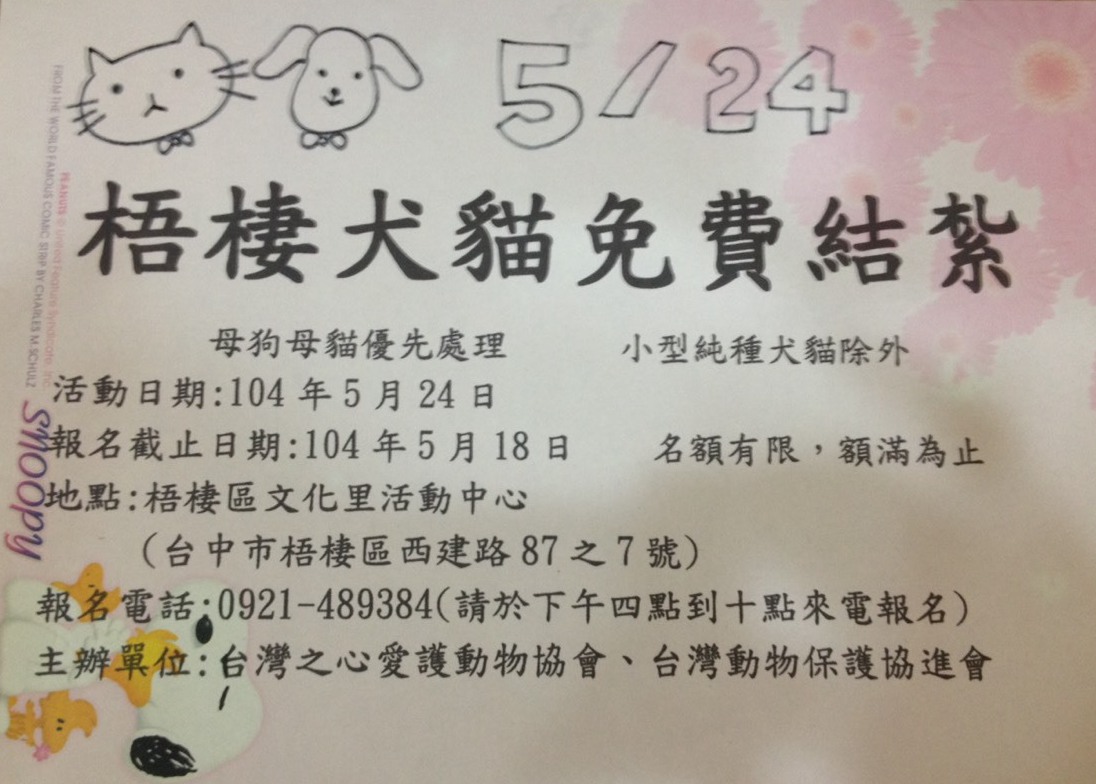 5/24
梧棲犬貓免費結紮
母狗母貓優先處理 小型純種犬貓除外
活動日期:104年5月24日
報名截止日期:104年5月18日 名額有限，額滿為止
地點:梧棲區文化里活動中心
(台中市梧棲區西建路87之7號)
報名電話:0921-489384(請於下午四點到十點來電報名)
主辦單位:台灣之心愛護動物協會、台灣動物保護協進會
FROM THE WORLD FAMOUS COMIC STRIP BY CHARLES M. SCHULZ
PEANUTS © United Feature Syndicate, Inc.
SNOOPY